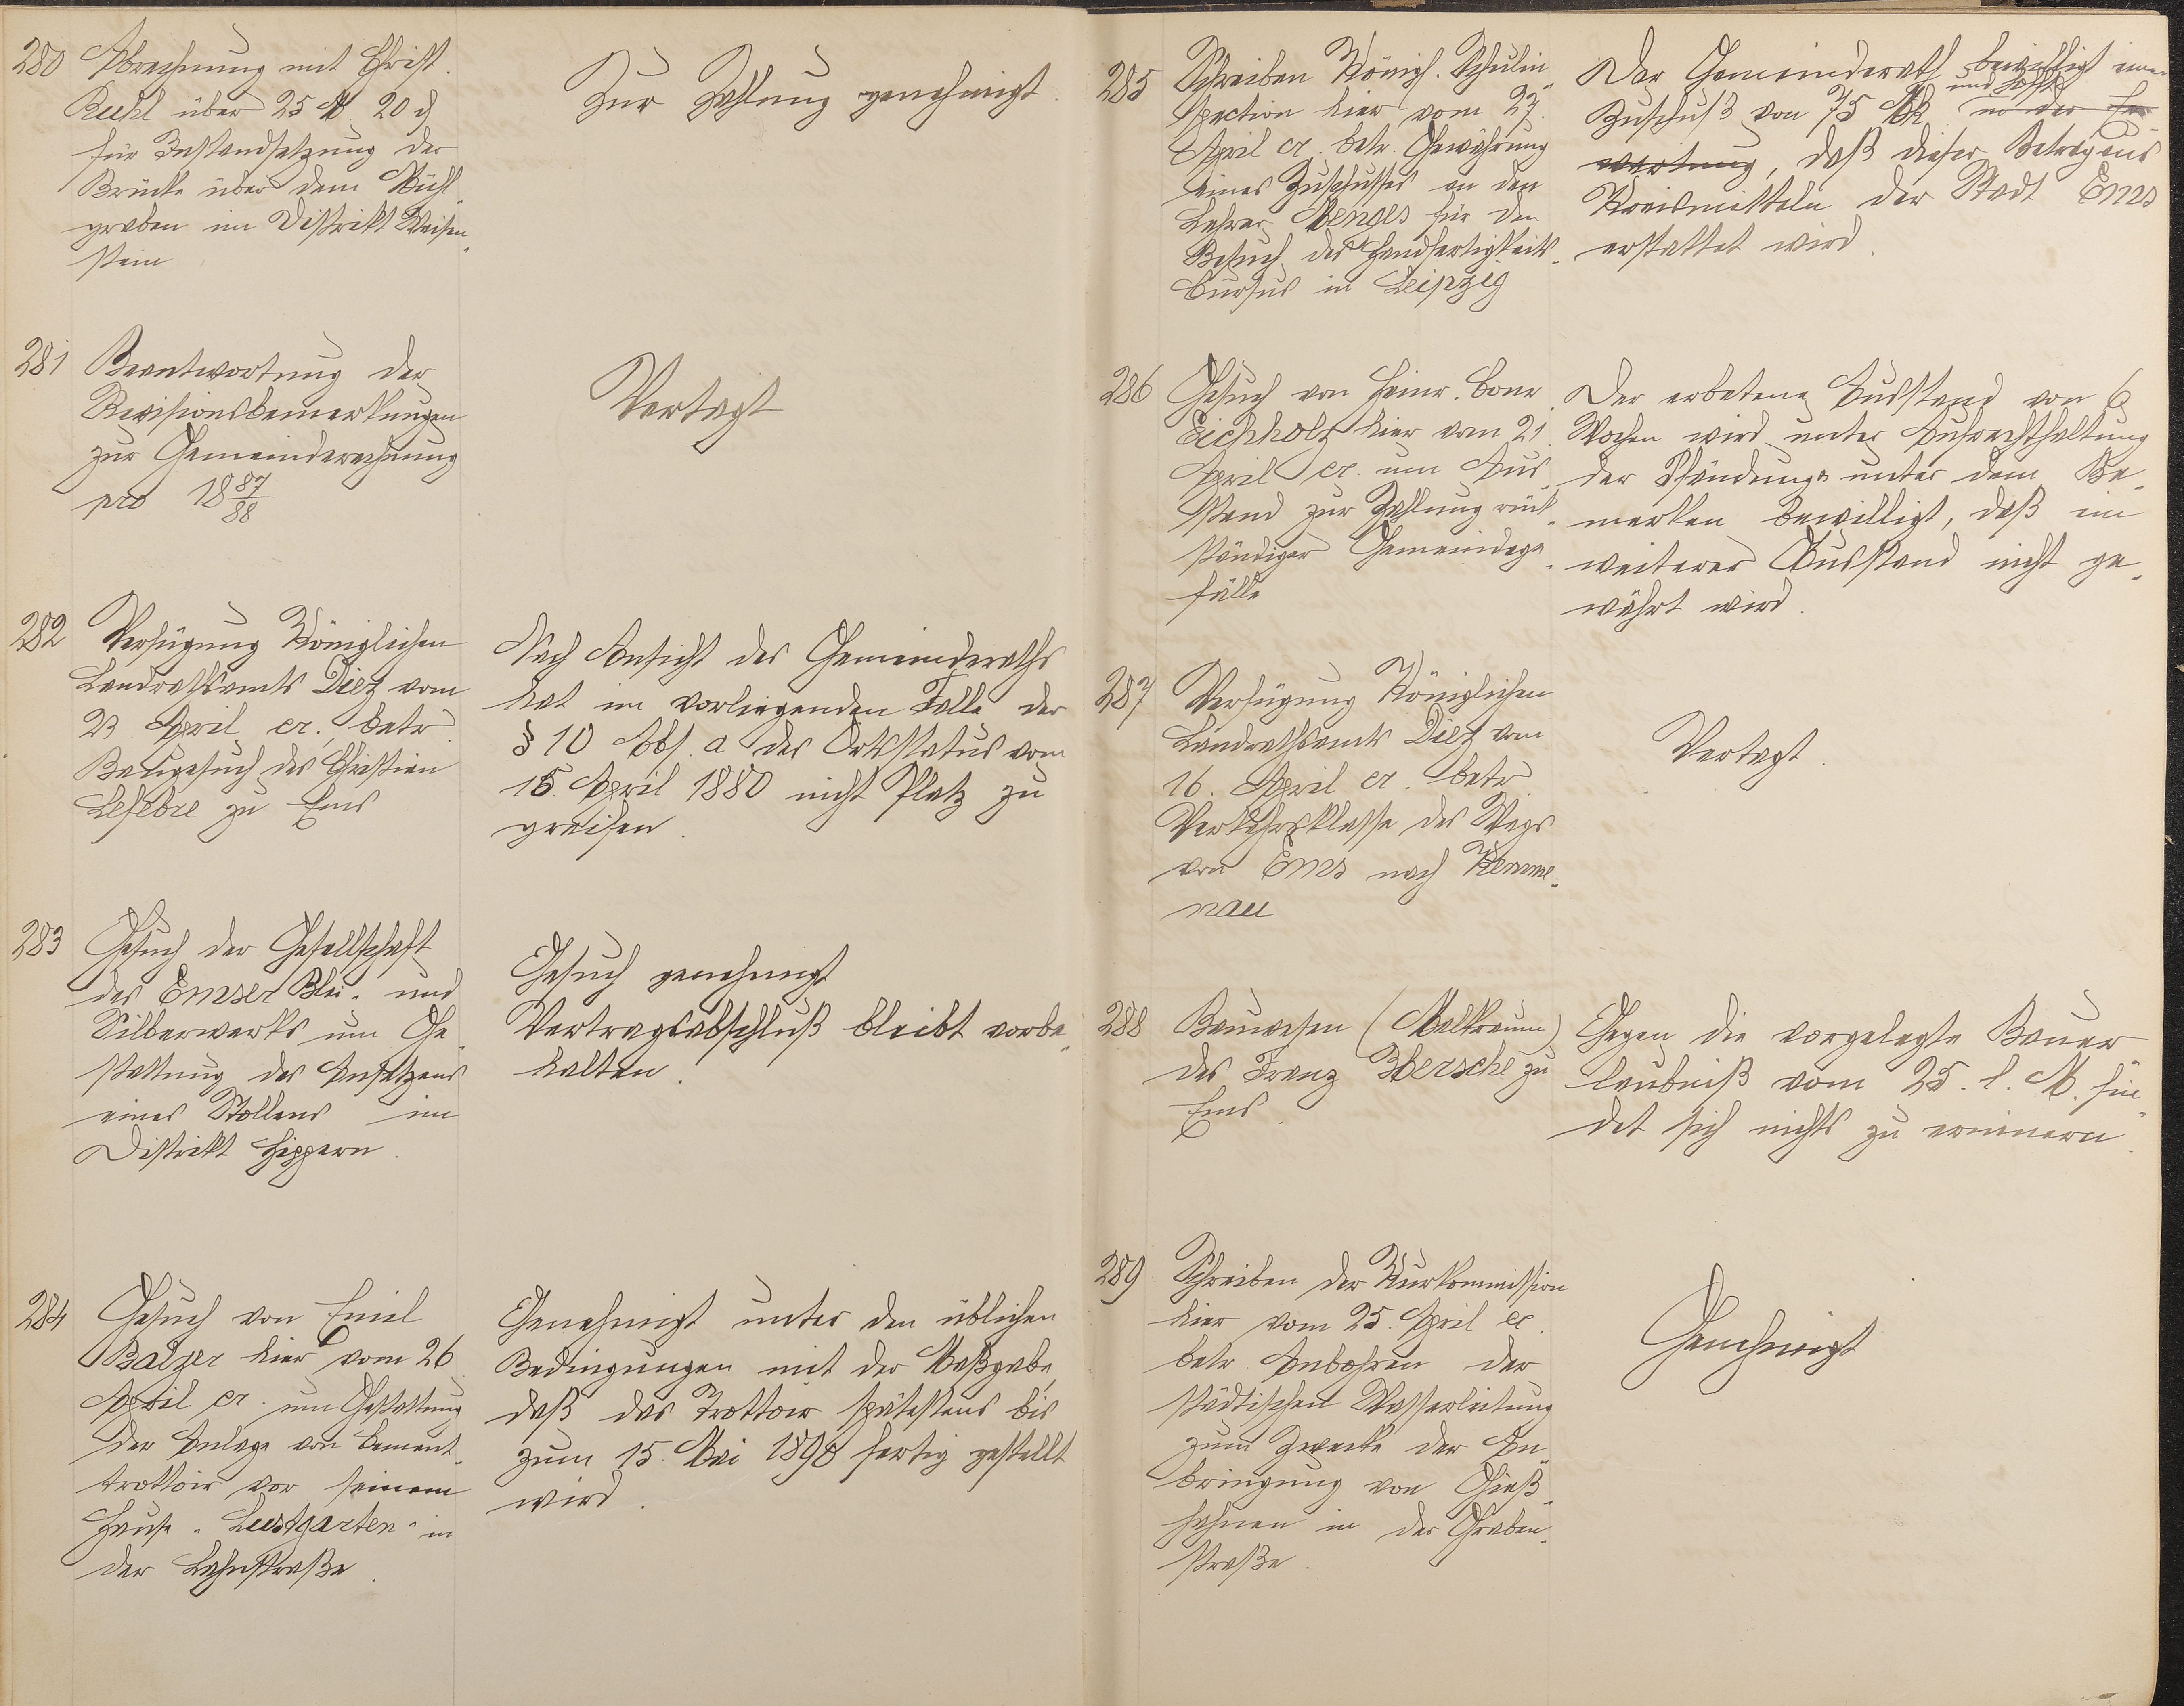 280 Abrechnung mit Christ.
Buhl über 25 M 20 ₰
für Instandsetzung der
Brücke über dem Mühl-
graben im Distrikt Weisen-
stein
Zur Zahlung genehmigt.
281 Beantwortung der
Revisionsbemerkungen
zur Gemeinderechnung
pro 1887/88
Vertagt
282 Verfügung Königlichen
Landrathsamts Diez vom
23 April cr. betr.
Baugesuch des Christian
Lefebre zu Ems
Nach Ansicht des Gemeinderaths
hat im vorliegenden Falle der
§ 10 Abs. a des Ortsstatus vom
15. April 1880 nicht Platz zu
greifen.
283 Gesuch der Gesellschaft
des Emser Blei- und
Silberwerks um Ge-
stattung des Ansetzens
eines Stollens im
Distrikt Hippern.
Gesuch genehmigt
Vertragsabschluß bleibt vorbe-
halten.
284 Gesuch von Emil
Balzer hier vom 26
April cr. um Gestattung
der Anlage von Cement-
trottoir vor seinem
Hause "Lustgarten" in
der Lahnstraße.
Genehmigt unter den üblichen
Bedingungen mit der Maßgabe,
daß das Trottoir spätestens bis
zum 15. Mai 1890 fertig gestellt
wird.
285 Schreiben Königl. Schulin-
spection hier vom 27.
April cr. betr. Gewährung
eines Zuschusses an den
Lehrer Menges für den
Besuch des Handfertigkeits-
Cursus in Leipzig
Der Gemeinderath bewilligt einen
und hofft
Zuschuß von 75 Mk in der Er-
wartung, daß dieser Betrag aus
Kreismitteln der Stadt Ems
erstattet wird.
286 Gesuch von Heinr. Conr.
Eichholz hier vom 21.
April cr. um Aus-
stand zur Zahlung rück-
ständiger Gemeindege-
fälle
Der erbetene Ausstand von 6
Wochen wird unter Aufrechthaltung
der Pfändung unter dem Be-
merken bewilligt, daß ein
weiterer Ausstand nicht ge-
währt wird.
287 Verfügung Königlichen
Landrathsamts Diez vom
16. April cr. betr.
Verkehrsklasse des Wegs
von Ems nach Kemme-
nau
Vertagt.
288 Bauwesen (Melkraum)
des Franz Bersche zu
Ems
Gegen die vorgelegte Bauer-
laubniß vom 25. l. M. fin-
det sich nichts zu erinnern.
289 Schreiben der Kurkommission
hier vom 25. April cr.
betr. Anbohren der
städtischen Wasserleitung
zum Zwecke der An-
bringung von Gieß-
hahnen in der Graben-
straße.
Genehmigt